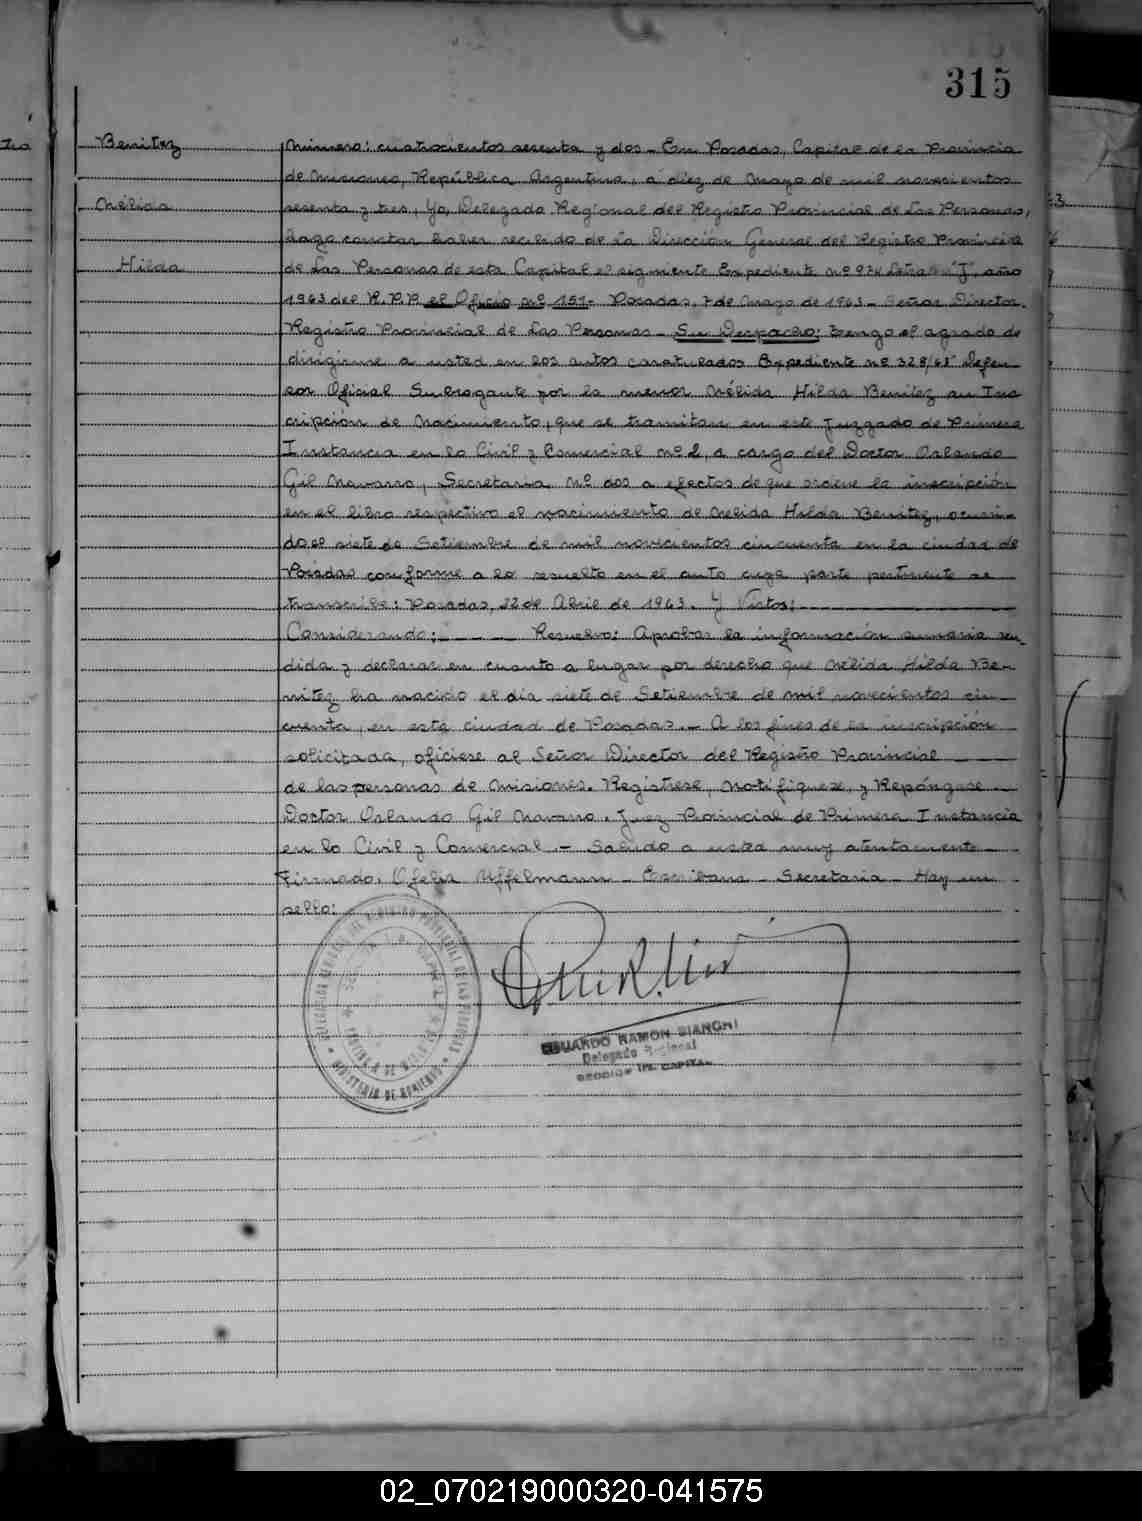 315
Benitez
Nélida
Hilda
Número: cuatrocientos sesenta y dos - En Posadas, Capital de la Provincia
de Misiones, República Argentina, a diez de Mayo de mil novecientos
sesenta y tres, Yo, Delegado Regional del Registro Provincial de las Personas,
hago constar haber recibido de la Dirección General del Registro Provincial
de las Personas de esta Capital el siguiente Expediente nº 974 Letra "J", año
1963 del R.P.P. el Oficio nº 151- Posadas, 7 de Mayo de 1963 - Señor Director
Registro Provincial de las Personas - Su Despacho: Tengo el agrado de
dirigirme a usted en los autos caratulados Expediente nº 328/63 Defen-
sor Oficial Subrogante por la menor Nélida Hilda Benitez su Ins
cripción de Nacimiento, que se tramitan en este Juzgado de Primera
Instancia en lo Civil y Comercial nº 2, a cargo del Doctor Orlando
Gil Navarro, Secretaria Nº dos a efectos de que ordene la inscripción
en el libro respectivo el nacimiento de Nelida Hilda Benitez, ocurri-
do el siete de Setiembre de mil novecientos cincuenta en la ciudad de
Posadas conforme a lo resuelto en el auto cuya parte pertinente se
transcribe: Posadas, 22 de Abril de 1963. Y Vistos:
Considerando: - - - Resuelvo: Aprobar la información sumaria ren-
dida y declarar en cuanto a lugar por derecho que Nélida Hilda Be-
nitez ha nacido el día siete de Setiembre de mil novecientos cin
cuenta, en esta ciudad de Posadas. - A los fines de la inscripción
solicitada, ofíciese al Señor Director del Registro Provincial
de las personas de Misiones. Regístrese, notifíquese, y Repóngase
Doctor Orlando Gil Navarro. Juez Provincial de Primera Instancia
en lo Civil y Comercial. - Saludo a usted muy atentamente -
Firmado. Ofelia Uffelmann - Escribana - Secretaria - Hay un
sello:
EDUARDO RAMON BIANCHI
Delegado Regional
MINISTERIO DE GOBIERNO
02_070219000320-041575